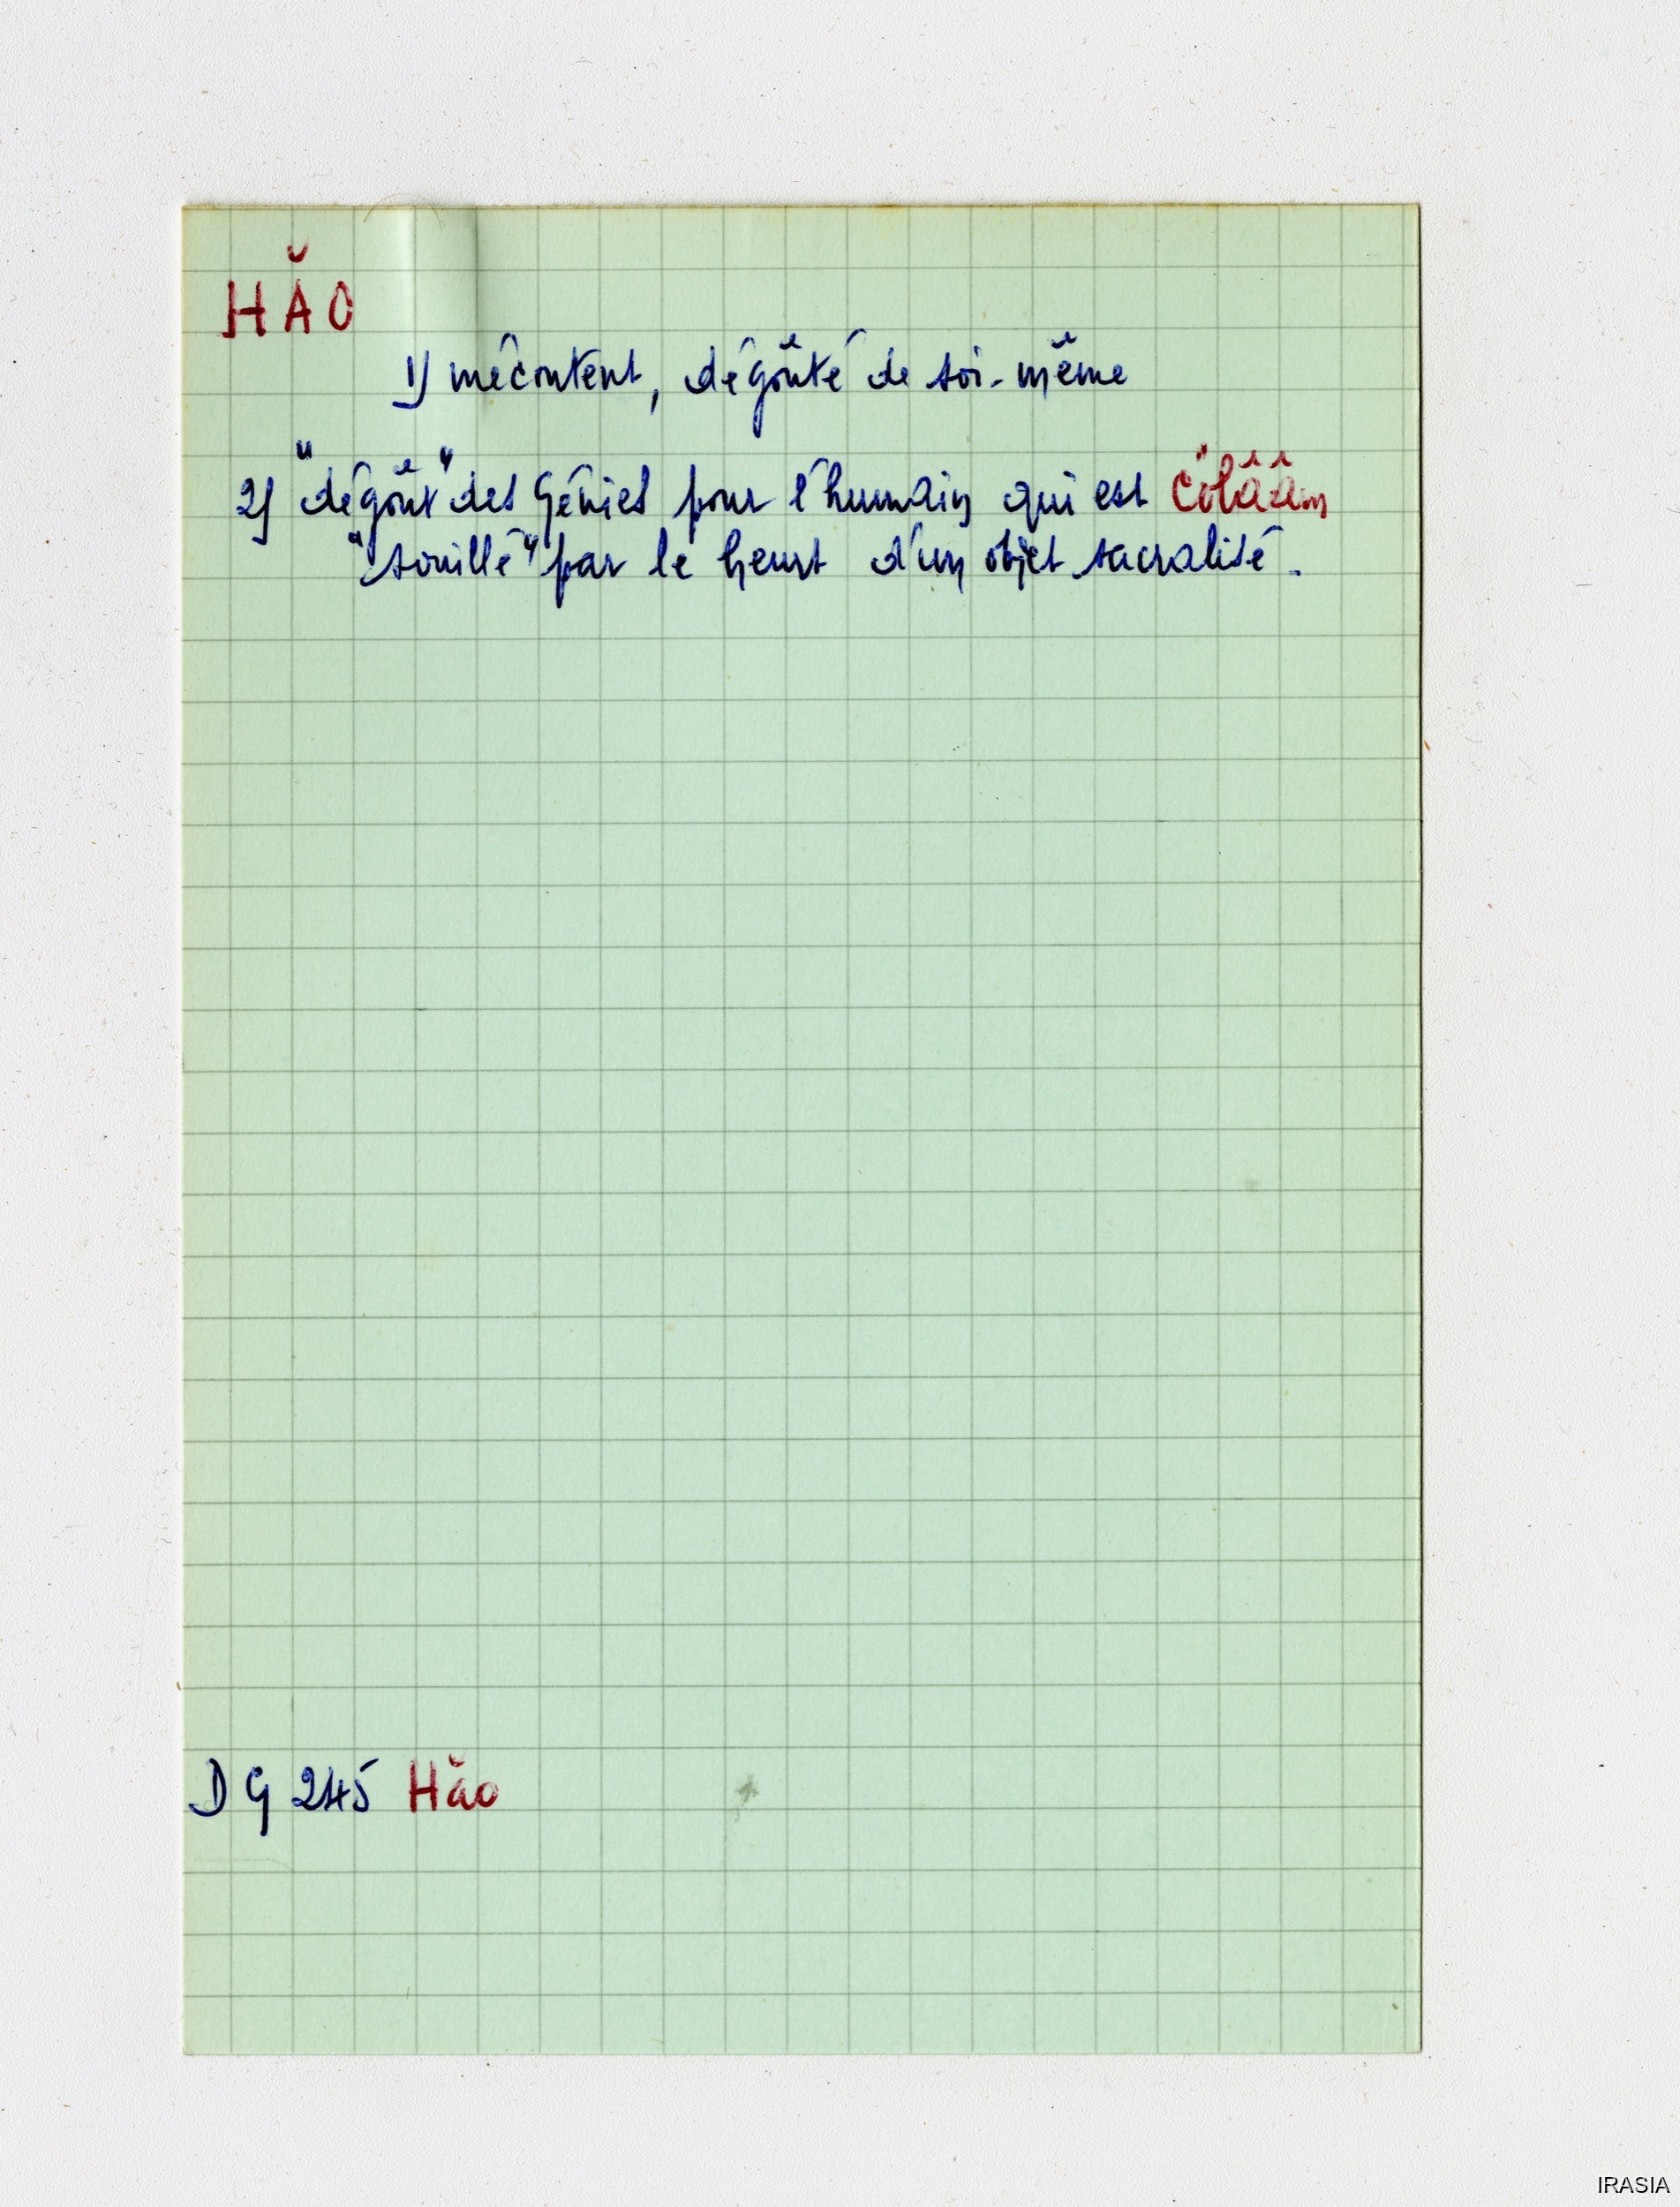 HĂO
1) mécontent, dégoûté de soi-même
2) "dégoût" des Génies pour l'humain qui est cölââm
"souillé" par le heurt d'un objet sacralisé.
DG 245 Hăo
IRASIA